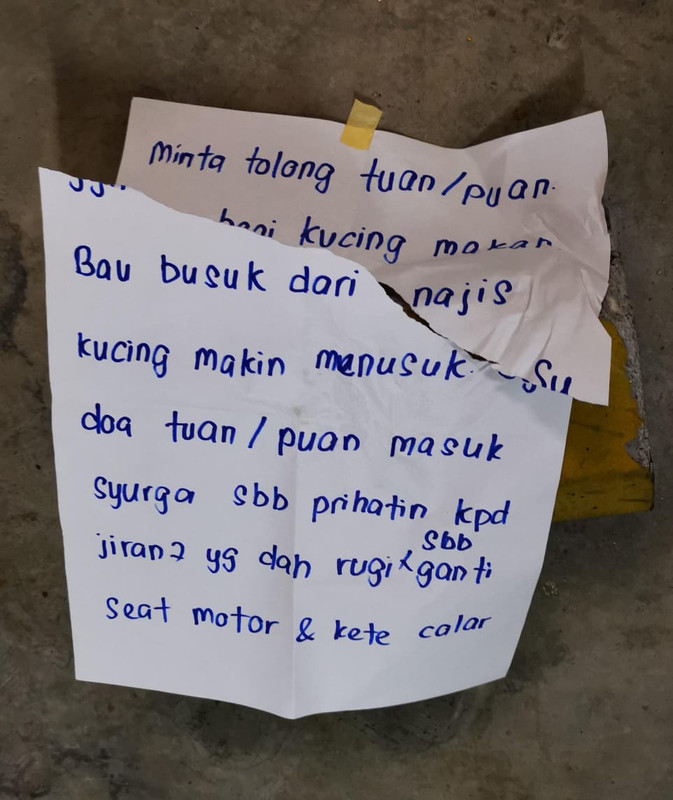 Minta tolong tuan/puan.
bagi kucing makan
Bau busuk dari najis
kucing makin menusuk.
doa tuan/puan masuk
syurga sbb prihatin kpd
jiran2 yg dah rugi sbb ganti
seat motor & kete calar